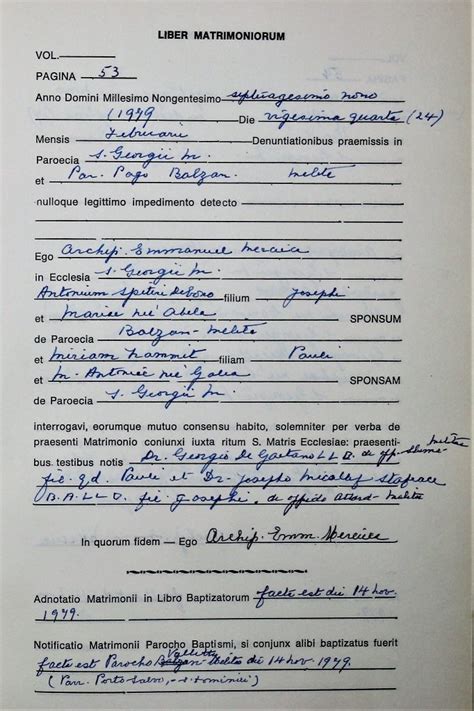 LIBER MATRIMONIORUM
VOL.
PAGINA 53
Anno Domini Millesimo Nongentesimo septuagesimo nono
(1979 Die vigesima quarta (24)
Mensis Februarii Denuntiationibus praemissis in
Paroecia S. Georgii M.
et Par. Pago Balzan Melite
nulloque legittimo impedimento detecto
Ego Archip. Emmanuel Mercieca
in Ecclesia S. Georgii M.
Antonium Spiteri Debono filium Josephi
et Mariae née Abela SPONSUM
de Paroecia Balzan - Melite
et Miriam Zammit filiam Pauli
et M. Antoniae née Galea SPONSAM
de Paroecia S. Georgii M.
interrogavi, eorumque mutuo consensu habito, solemniter per verba de
praesenti Matrimonio coniunxi iuxta ritum S. Matris Ecclesiae: praesenti-
bus testibus notis Dr. Georgio De Gaetano LL.D. de opp. Melite
fil. qd. Pauli et Dr. Josepho Micalef Stafrace
B.A. LL.D. fil. Josephi, de oppido Attard - Melite
In quorum fidem — Ego Archip. Emm. Mercieca
Adnotatio Matrimonii in Libro Baptizatorum facta est die 14 Nov.
1979.
Notificatio Matrimonii Parocho Baptismi, si conjunx alibi baptizatus fuerit
Valletta
facta est Parocho Balzan - Melite di 14 Nov. 1979
(Par. Porto Salvo, - S. Dominici)